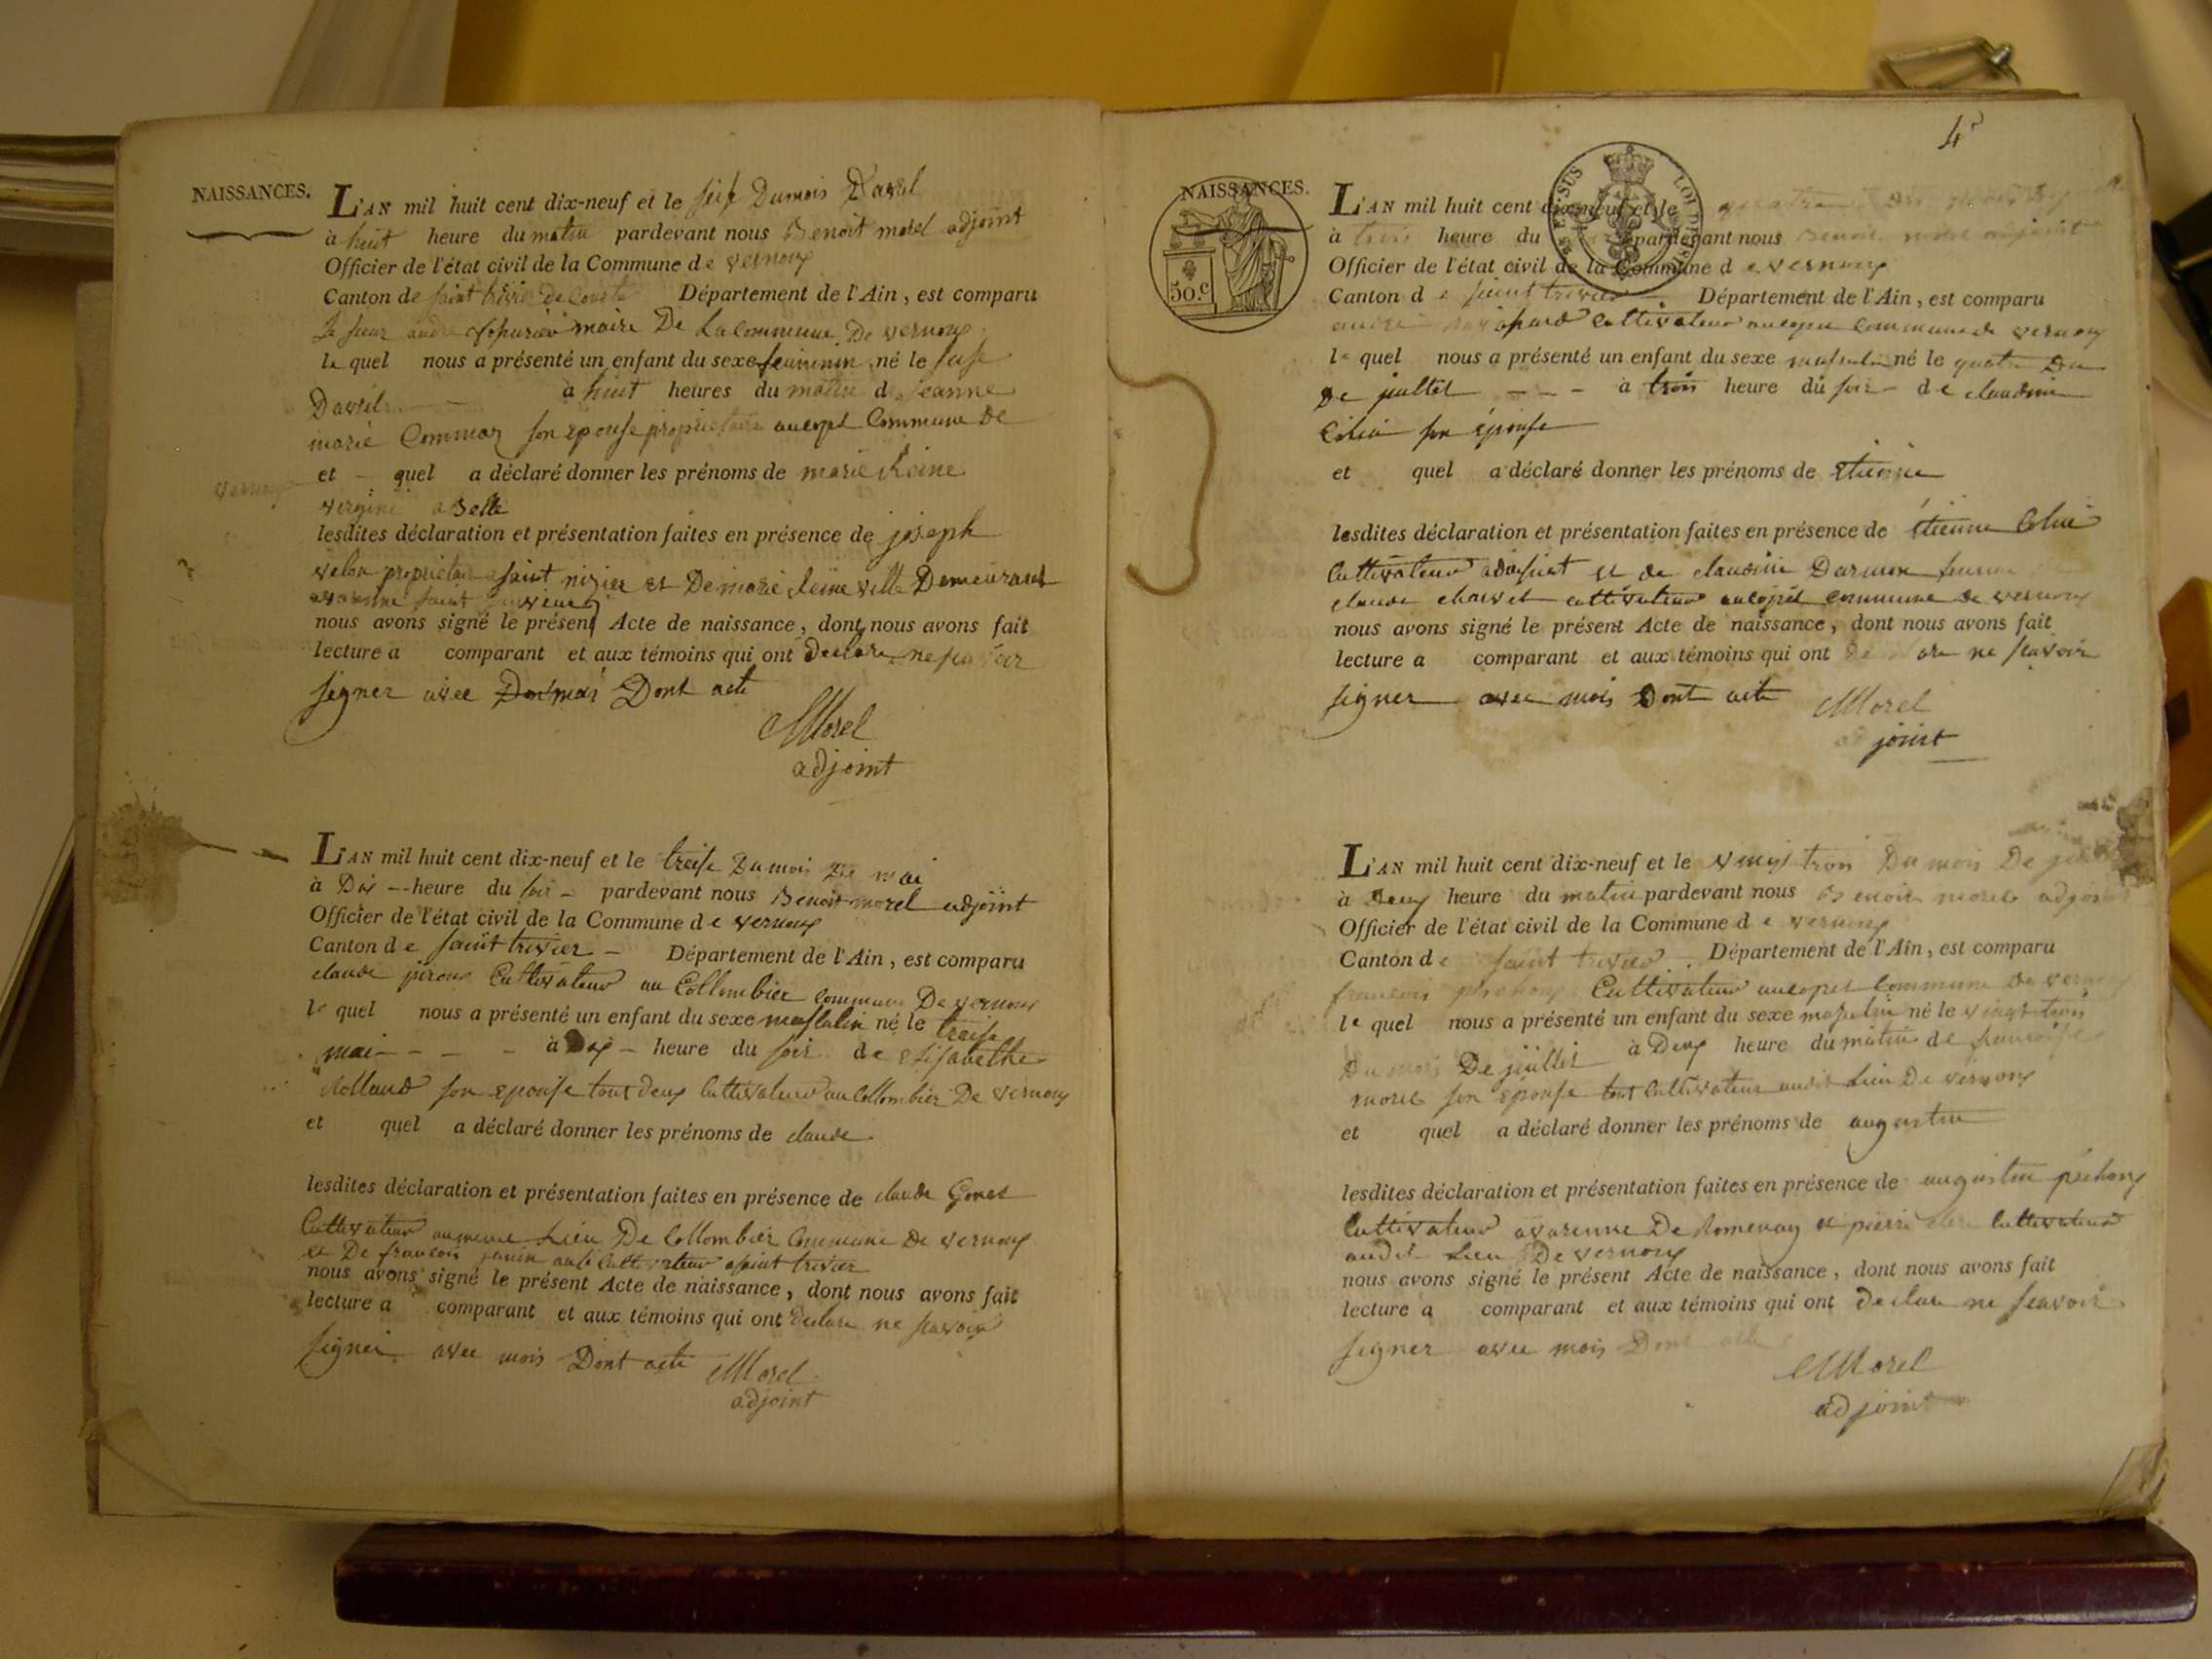 NAISSANCES.
L'AN mil huit cent dix-neuf et le seise Dumois Davril
à huit heure du matin pardevant nous Benoit morel adjoint
Officier de l'état civil de la Commune de vernoux
Canton de saint trivier de Département de l'Ain, est comparu
Le sieur maire De La Commune De vernoux
le quel nous a présenté un enfant du sexe feminin né le seise
Davril à huit heures du matin de jeanne
marie son epouse proprietaire Commune De
vernoux
et - quel a déclaré donner les prénoms de marie Reine
lesdites déclaration et présentation faites en présence de joseph
velon proprietaire a saint nizier et De marie Reine Demeurant
nous avons signé le présent Acte de naissance, dont nous avons fait
lecture a comparant et aux témoins qui ont declare ne scavoir
signer avec moi Dont acte
Morel
adjoint
L'AN mil huit cent dix-neuf et le treise Dumois De mai
à Dix heure du soir pardevant nous Benoit morel adjoint
Officier de l'état civil de la Commune de vernoux
Canton de saint trivier Département de l'Ain, est comparu
claude Cultivateur au Collombier commune De vernoux
le quel nous a présenté un enfant du sexe masculin né le treise
mai - - - à Dix - heure du soir de elisabethe
Rolland son epouse tout deux Cultivateur au Collombier De vernoux
et quel a déclaré donner les prénoms de claude
lesdites déclaration et présentation faites en présence de claude
Cultivateur au meme Lieu De Collombier Commune De vernoux
et De francois janin Cultivateur a saint trivier
nous avons signé le présent Acte de naissance, dont nous avons fait
lecture a comparant et aux témoins qui ont declare ne scavoir
signer avec mois Dont acte Morel
adjoint
4
NAISSANCES.
50.C
L'AN mil huit cent dix-neuf et le quatre
à trois heure du pardevant nous Benoit morel adjoint
Officier de l'état civil de la Commune de vernoux
Canton de saint trivier Département de l'Ain, est comparu
Cultivateur commune de vernoux
le quel nous a présenté un enfant du sexe masculin né le quatre Du
De juillet - - - à trois heure du soir - de claudine
son épouse
et quel a déclaré donner les prénoms de étienne
lesdites déclaration et présentation faites en présence de étienne
Cultivateur et de claudine
claude cultivateur commune de vernoux
nous avons signé le présent Acte de naissance, dont nous avons fait
lecture a comparant et aux témoins qui ont ne scavoir
signer avec mois Dont acte Morel
adjoint
L'AN mil huit cent dix-neuf et le vingt trois Du mois De
à Deux heure du matin pardevant nous Benoit morel adjoint
Officier de l'état civil de la Commune de vernoux
Canton de saint trivier Département de l'Ain, est comparu
francois Cultivateur commune de vernoux
le quel nous a présenté un enfant du sexe masculin né le vingt trois
Du mois De juillet à Deux heure du matin de francoise
morel son épouse tout Cultivateur audit Lieu De vernoux
et quel a déclaré donner les prénoms de augustin
lesdites déclaration et présentation faites en présence de augustin
Cultivateur a varenne De Romenay et pierre Cultivateur
audit Lieu De vernoux
nous avons signé le présent Acte de naissance, dont nous avons fait
lecture a comparant et aux témoins qui ont declare ne scavoir
signer avec mois Dont acte
Morel
adjoint